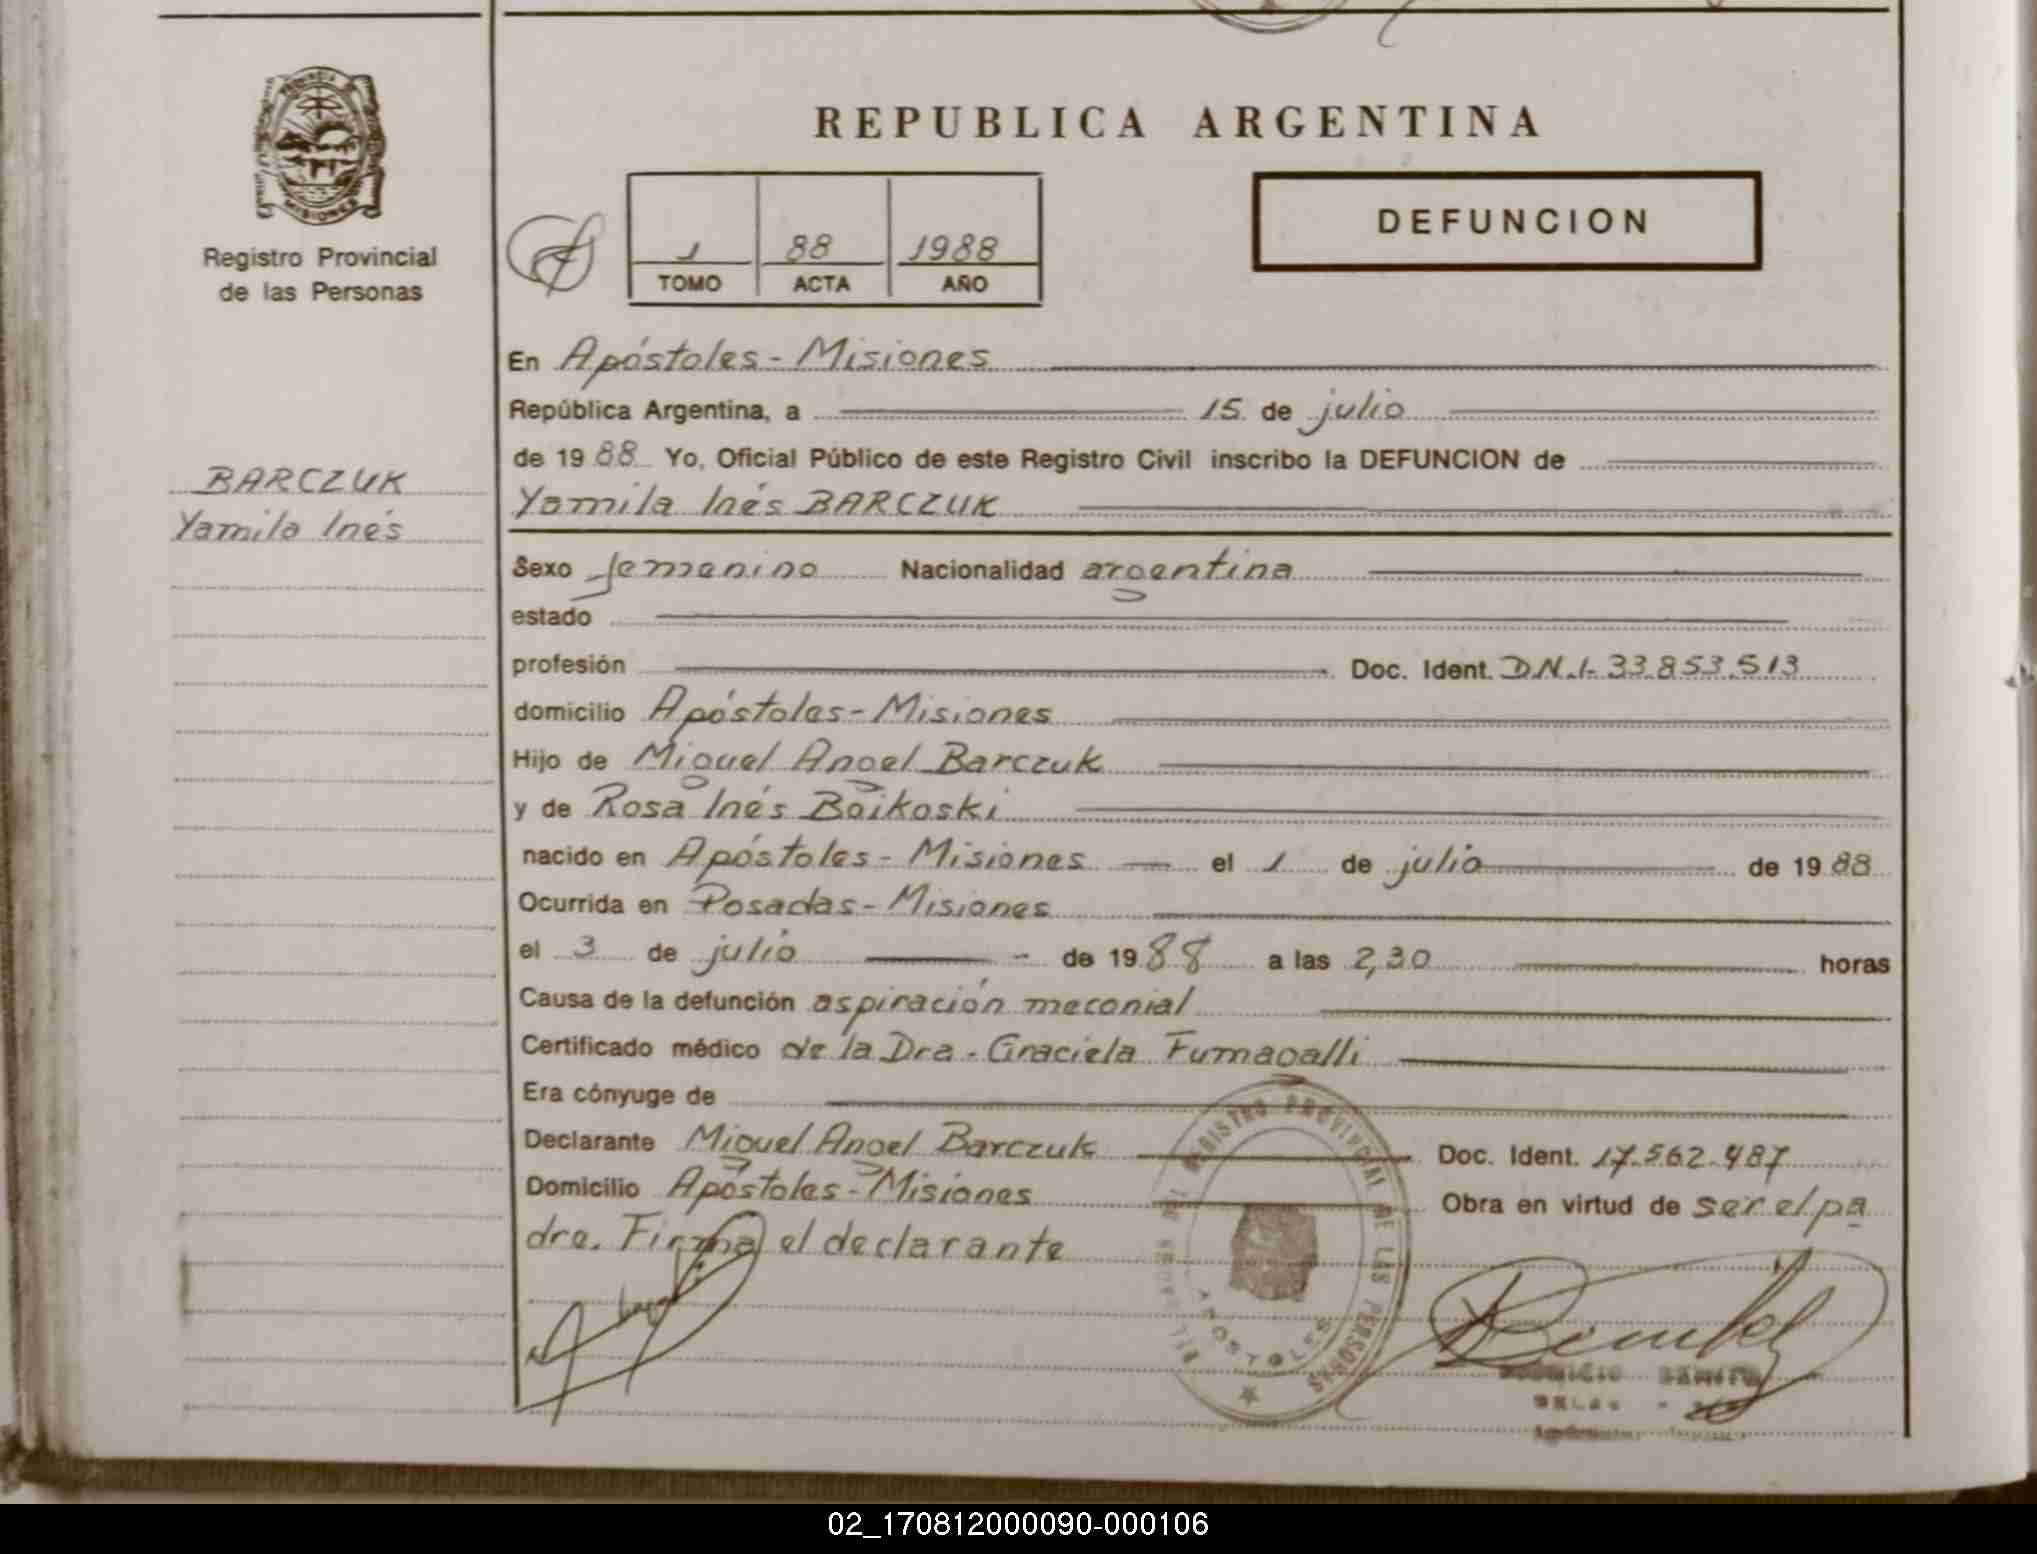 PROVINCIA DE
MISIONES
Registro Provincial
de las Personas
BARCZUK
Yamila Inés
REPUBLICA ARGENTINA
1 88 1988
TOMO ACTA AÑO
DEFUNCION
En Apóstoles - Misiones
República Argentina, a 15 de julio
de 1988 Yo, Oficial Público de este Registro Civil inscribo la DEFUNCION de
Yamila Inés BARCZUK
Sexo femenino Nacionalidad argentina
estado
profesión Doc. Ident. D.N.I. 33.853.513
domicilio Apóstoles - Misiones
Hijo de Miguel Angel Barczuk
y de Rosa Inés Boikoski
nacido en Apóstoles - Misiones el 1 de julio de 1988
Ocurrida en Posadas - Misiones
el 3 de julio de 1988 a las 2,30 horas
Causa de la defunción aspiración meconial
Certificado médico de la Dra. Graciela Fumagalli
Era cónyuge de
Declarante Miguel Angel Barczuk Doc. Ident. 17.562.487
Domicilio Apóstoles - Misiones Obra en virtud de ser el pa
dre. Firma el declarante
REGISTRO PROVINCIAL DE LAS PERSONAS
APOSTOLES
02_170812000090-000106